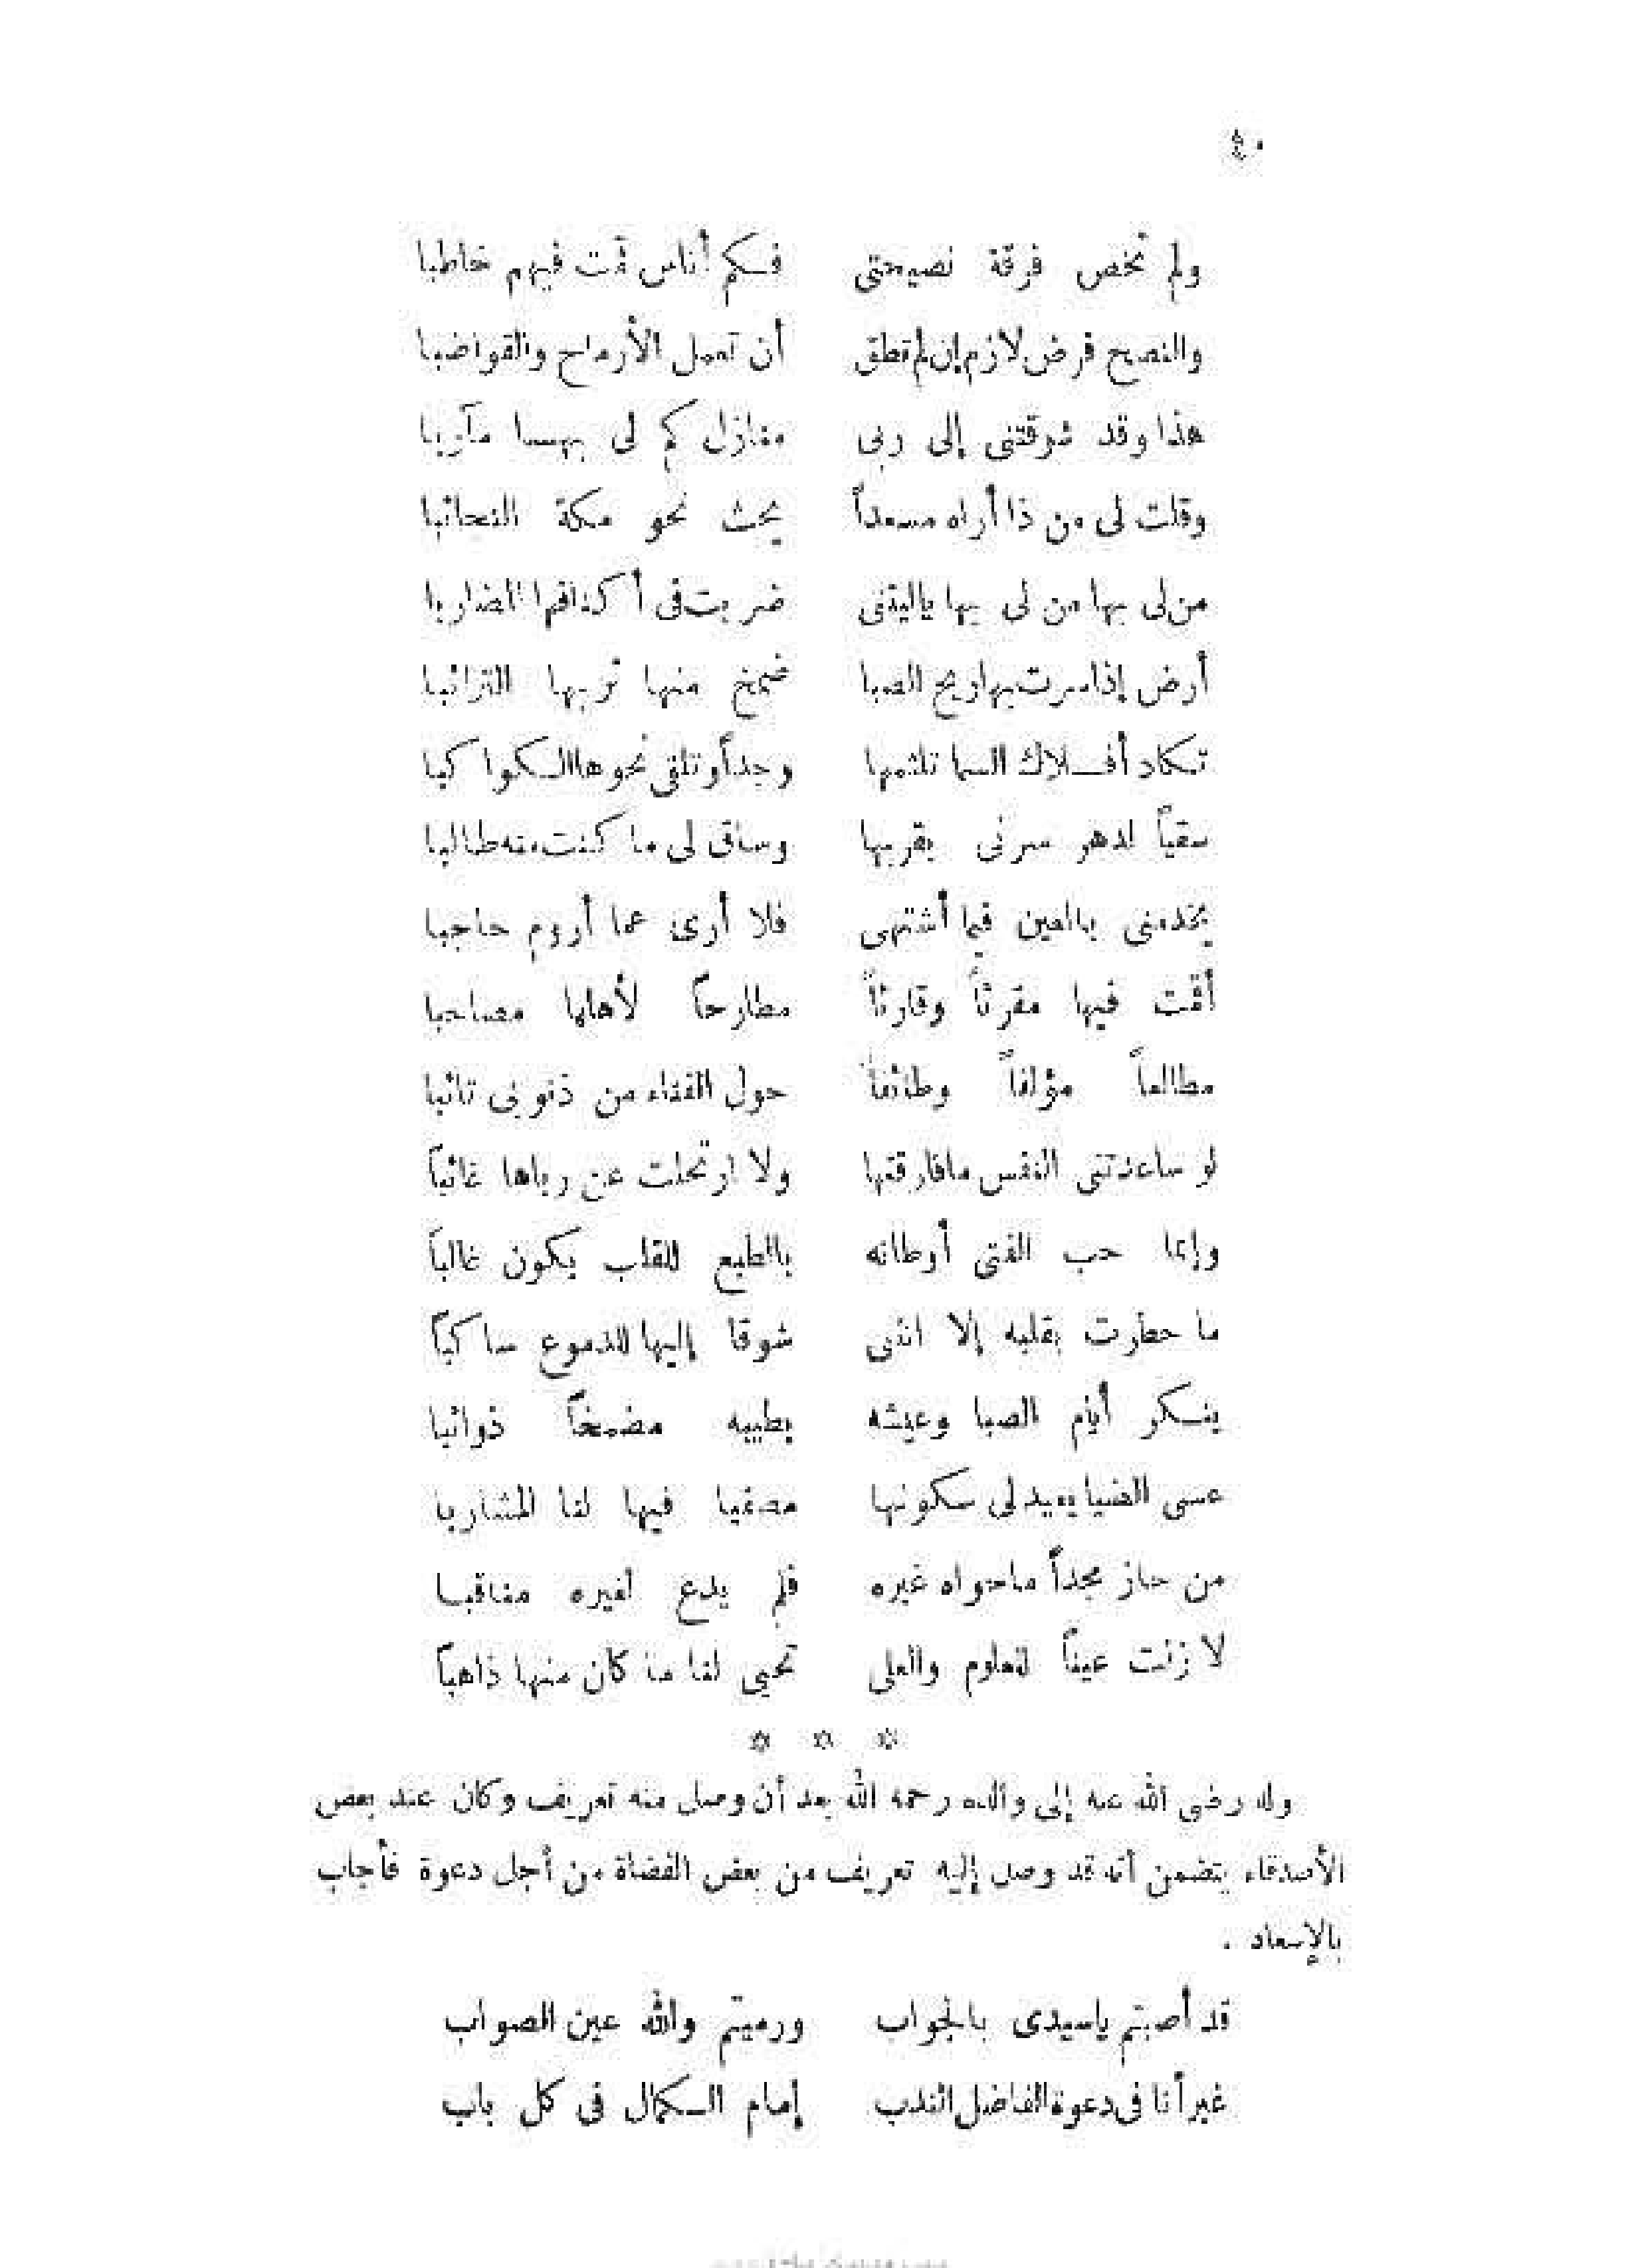 ٤٠
ولم تخص فرقة نصيحتى فكم أناس قمت فيهم خاطبا
والنصح فرض لازم إن لم تطق أن تعمل الأرماح والقواضبا
هذا وقد شوقتنى إلى ربى منازل كم لى بهسا مآربا
وقلت لى من ذا أراه مسعداً يحث نحو مكة النجائبا
من لى بها من لى بها ياليتنى ضربت فى أكنافها المضاربا
أرض إذا سرت بها ريح الصبا ضمخ منها تربها الترائبا
تكاد أفلاك السما تلثمها وجداً وتلقى نحوها الكواكبا
سقياً لدهر سرنى بقربها وساق لى ما كنت منه طالبا
يخدمنى بالعين فيما أشتهى فلا أرى عما أروم حاجبا
أقمت فيها مقرئاً وقارئاً مطارحاً لأهلها مصاحبا
مطالعاً مؤلفاً وطائفاً حول الفناء من ذنوبى تائبا
لو ساعدتنى النفس مافارقتها ولا ارتحلت عن رباها غائباً
وإنما حب الفتى أوطانه بالطبع للقلب يكون غالباً
ما خطرت بقلبه إلا انثنى شوقا إليها للدموع ساكباً
يذكر أيام الصبا وعيشه بطيبه مضمخاً ذوائبا
عسى الضيا يعيد لى سكونها مصفيا فيها لنا المشاربا
من حاز مجداً ماحواه غيره فلم يدع لغيره مناقبا
لا زلت عيناً للعلوم والعلى تحيى لنا ما كان منها ذاهباً
☆ ☆ ☆
وله رضى الله عنه إلى والده رحمه الله بعد أن وصل منه تعريف وكان عند بعض
الأصدقاء يتضمن أنه قد وصل إليه تعريف من بعض القضاة من أجل دعوة فأجاب
بالإسعاد .
قد أصبتم ياسيدى بالجواب ورميتم والله عين الصواب
غير أنا فى دعوة الفاضل الندب إمام الكمال فى كل باب